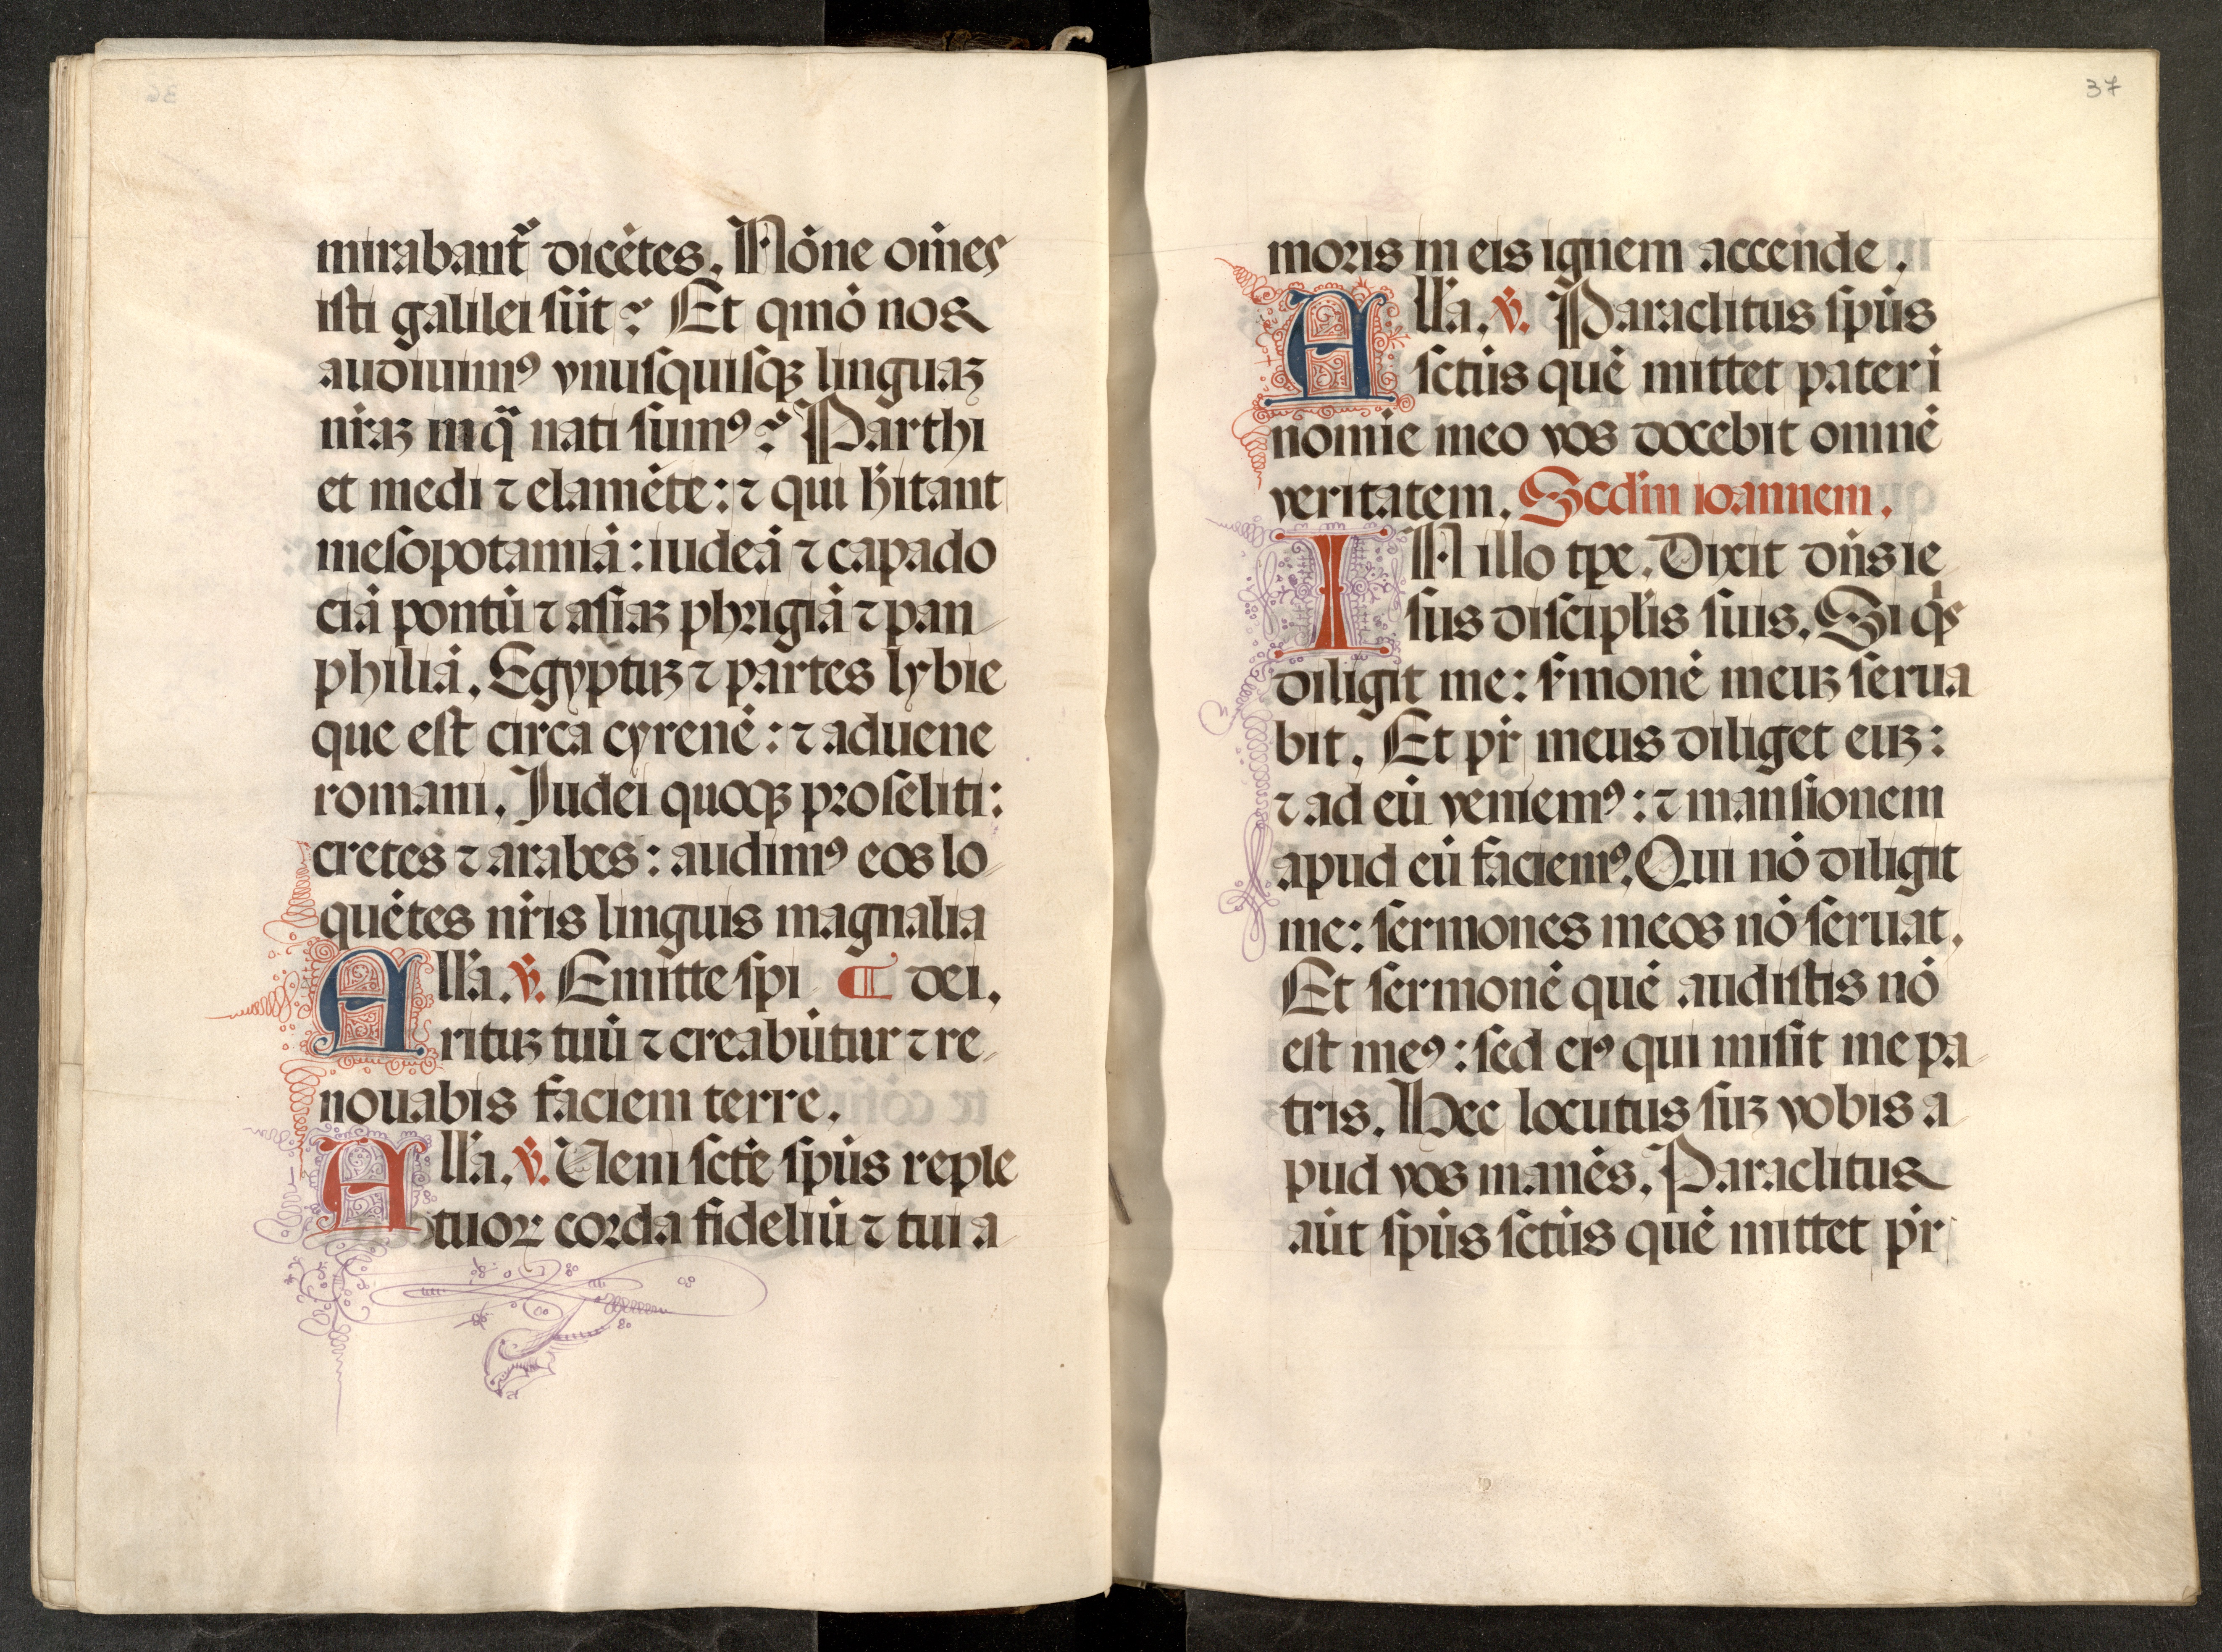 mirabant᷑ dicētes. Nōne om̄es
isti galilei sūt? Et qmō nos
audiuimꝰ vnusquisqꝫ linguaꝫ
nr̄aꝫ in q̄ nati sumꝰ? Parthi
et medi ⁊ elamēte: ⁊ qui h̄itant
mesopotamiā: iudeā ⁊ capado
ciā pontū ⁊ asiaꝫ phrigiā ⁊ pan
philiā. Egyptuꝫ ⁊ partes lybie
que est circa cyrenē: ⁊ aduene
romani. Iudei quoqꝫ proseliti:
cretes ⁊ arabes: audimꝰ eos lo
quētes nr̄is linguis magnalia
All'a. ℣. Emitte spi ¶ dei.
rituꝫ tuū ⁊ creabūtur ⁊ re
nouabis faciem terre.
All'a. ℣. Veni sctē spūs reple
tuoꝝ corda fideliū ⁊ tui a
37
moris in eis ignem accende.
All'a. ℣. Paraclitus spūs
sctūs quē mittet pater i
nomīe meo vos docebit omnē
veritatem. Scdm̄ ioannem.
IN illo tpē. Dixit dn̄s ie
sus discipl'is suis. Si qs
diligit me: s'monē meuꝫ serua
bit. Et pr̄ meus diliget euꝫ:
⁊ ad eū veniemꝰ: ⁊ mansionem
apud eū faciemꝰ. Qui nō diligit
me: sermones meos nō seruat.
Et sermonē quē audistis nō
est meꝰ: sed eiꝰ qui misit me pa
tris. Hec locutus suꝫ vobis a
pud vos manēs. Paraclitus
aūt spūs sctūs quē mittet pr̄